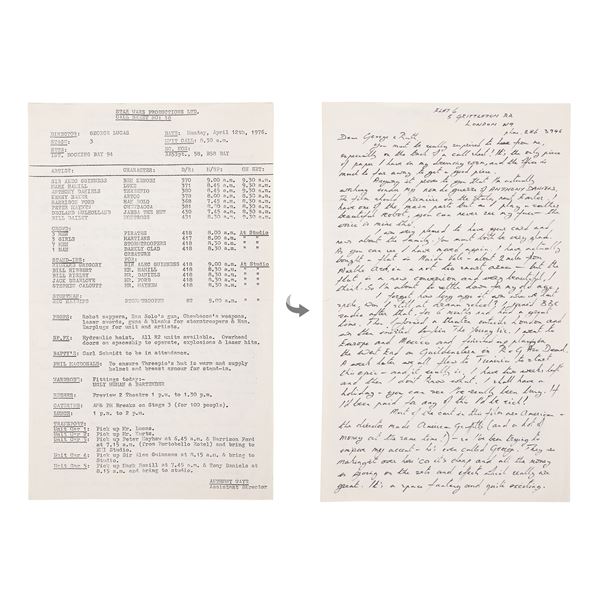 STAR WARS PRODUCTIONS LTD.
CALL SHEET NO: 16
DIRECTOR: GEORGE LUCAS DATE: Monday, April 12th, 1976.
STAGE: 3 UNIT CALL: 8.30 a.m.
SETS: SC. NOS:
INT. DOCKING BAY 94
ARTIST: CHARACTER: D/R: H/UP: ON SET:
SIR ALEC GUINNESS BEN KENOBI 370 9.00 a.m. 9.30 a.m.
MARK HAMILL LUKE 371 8.45 a.m. 8.30 a.m.
ANTHONY DANIELS THREEPIO 380 8.45 a.m. 8.30 a.m.
KENNY BAKER ARTOO 378 8.00 a.m. 8.30 a.m.
HARRISON FORD HAN SOLO 368 7.45 a.m. 8.30 a.m.
PETER MAYHEW CHEWBACCA 381 7.45 a.m. 8.30 a.m.
DECLAND MULHOLLAND JABBA THE HUT 450 7.45 a.m. 8.30 a.m.
BILL BAILEY 451 8.30 a.m.
CROWD:
3 MEN PIRATES 418 8.00 a.m. At Studio
3 GIRLS MARTIANS 417 8.00 a.m. " "
7 MEN STORMTROOPERS 418 8.00 a.m. " "
1 MAN BARELY CLAD 418 8.00 a.m. " "
CREATURE
STAND-INS: FOR:
RICHARD GREGORY SIR ALEC GUINNESS 418 9.00 a.m. At Studio
BILL HIBBERT MR. HAMILL 418 8.30 a.m. " "
BILL FINLEY MR. DANIELS 418 8.30 a.m. " "
JACK MR. FORD 418 8.30 a.m. " "
STEPHEN CALCUTT MR. MAYHEW 418 8.30 a.m. " "
STUNTMAN:
STORMTROOPER 82 9.00 a.m. " "
PROPS: Robot zappers, Han Solo's gun, Chewbacca's weapons,
laser swords, guns & blanks for stormtroopers & Han.
Earplugs for unit and artists.
SP.FX: Hydraulic hoist. All R2 units available. Overhead
doors on spaceship to operate, explosions & laser hits.
RAFTY'S: Carl Schmidt to be in attendance.
PHIL MACDONALD: To ensure Threepio's hut is warm and supply
helmet and breast armour for stand-in.
WARDROBE: Fittings today:-
UGLY HUMAN & BARTENDER
RUSHES: Preview 2 Theatre 1 p.m. to 1.30 p.m.
CATERING: AM& PM Breaks on Stage 3 (for 100 people).
LUNCH: 1 p.m. to 2 p.m.
TRANSPORT:
Unit Car 1: Pick up Mr. Lucas.
Unit Car 2: Pick up Mr. Kurtz.
Unit Car 3: Pick up Peter Mayhew at 6.45 a.m. & Harrison Ford
at 7.15 a.m. (from Portobello Hotel) and bring to
EMI Studio.
Unit Car 4: Pick up Sir Alec Guinness at 8.15 a.m. & bring to
Studio.
Unit Car 5: Pick up Mark Hamill at 7.45 a.m. & Tony Daniels at
8.15 a.m. and bring to studio.
ANTHONY WAYE
Assistant Director
FLAT 6
5 GRITTLETON RD
LONDON W9
286 3946
Dear George & Ruth
You must be really surprised to hear from me,
especially on the back of a call sheet! It's the only piece
of paper I have in my dressing room, and the office is
much too far away to get a good piece.
Anyway it goes to show that I'm actually
working under my nom de guerre of ANTHONY DANIELS.
The film should premiere on the and
have one of the main parts but as I play a rather
beautiful ROBOT, you can never see my face - the
voice is mine tho'.
I am very pleased to have your card and
news about the family. You must both be very glad.
As you can see I have moved again. I have actually
bought a flat in Maida Vale - about 2 miles from
Marble Arch, in a not too smart area - but the
flat is a new conversion and very beautiful, I
think. So I'm about to settle down for my old age!
I forget how long ago it was since we had
news, was I still at drama school? I joined BBC
radio after that, for 6 months and had a great
time. Then followed a theatre outside London and
Europe and Mexico and finished by playing
the West End in Guildenstern in R & G Are Dead.
A week later we flew to Tunisia to start
this epic - and it really is. I have two weeks left
and then I don't know what. I shall have a
holiday - you can see I've really been busy. If
I'd been paid for any of this I'd be rich!
Most of the cast in this film are American -
the director made American Graffiti (and a lot of
money at the same time!) - so I've been trying to
improve my accent - he's even called George. They are
making it over here 'cos it's cheap and all the money
is going on the sets and effects which really are
great. It's a space fantasy and quite exciting.